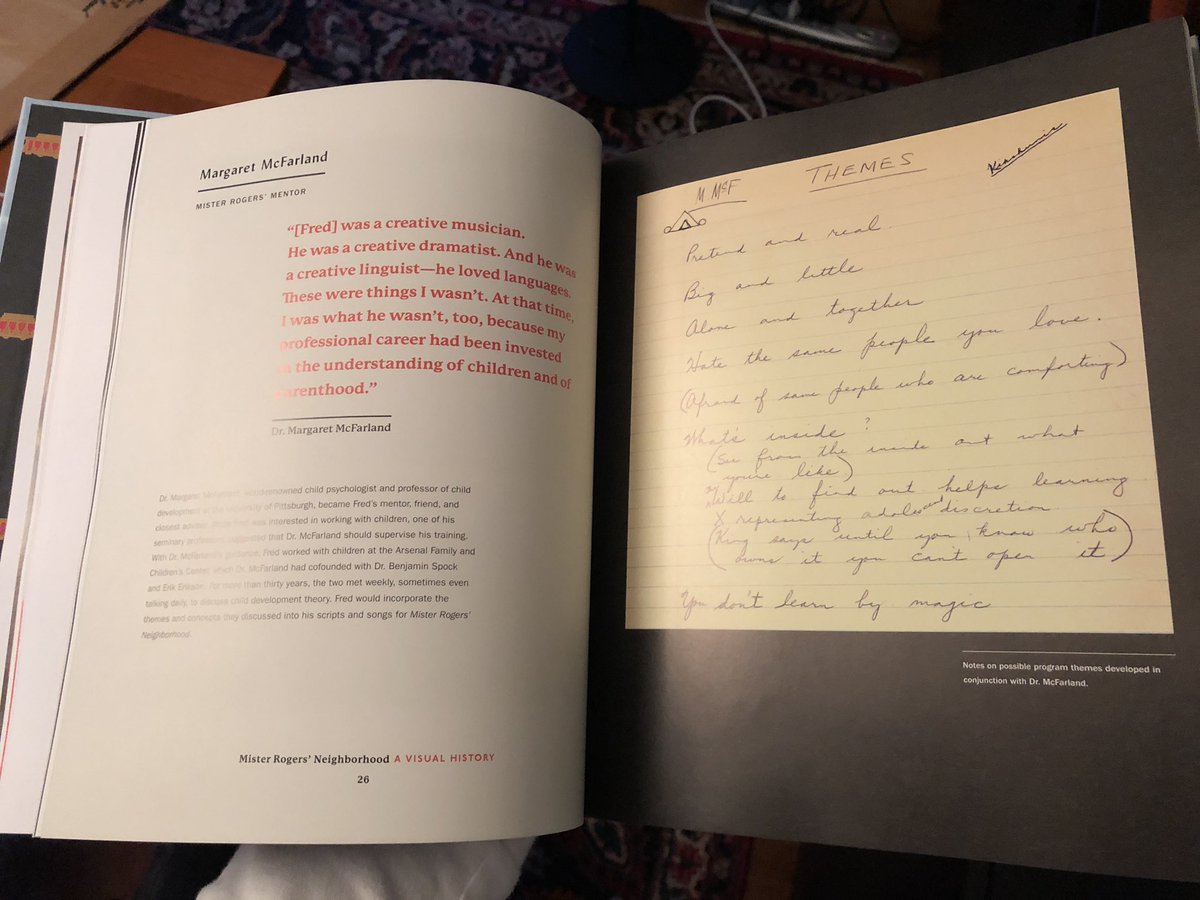 Margaret McFarland
MISTER ROGERS' MENTOR
“[Fred] was a creative musician.
He was a creative dramatist. And he was
a creative linguist—he loved languages.
These were things I wasn't. At that time,
I was what he wasn't, too, because my
professional career had been invested
in the understanding of children and of
parenthood.”
Dr. Margaret McFarland
Dr. Margaret McFarland, world-renowned child psychologist and professor of child
development at the University of Pittsburgh, became Fred's mentor, friend, and
closest advisor. Fred was interested in working with children, one of his
seminary professors suggested that Dr. McFarland should supervise his training.
With Dr. McFarland's guidance, Fred worked with children at the Arsenal Family and
Children's Center, which Dr. McFarland had cofounded with Dr. Benjamin Spock
and Erik Erikson. For more than thirty years, the two met weekly, sometimes even
talking daily, to discuss child development theory. Fred would incorporate the
themes and concepts they discussed into his scripts and songs for Mister Rogers'
Neighborhood.
Mister Rogers' Neighborhood A VISUAL HISTORY
26
M. McF
THEMES
Pretend and real.
Big and little
Alone and together
Hate the same people you love.
(Afraid of same people who are comforting)
What's inside?
(See from the inside out what
you're like)
Will to find out helps learning
X representing adoles and discretion
(King says until you know who
owns it you can't open it)
You don't learn by magic
Notes on possible program themes developed in
conjunction with Dr. McFarland.